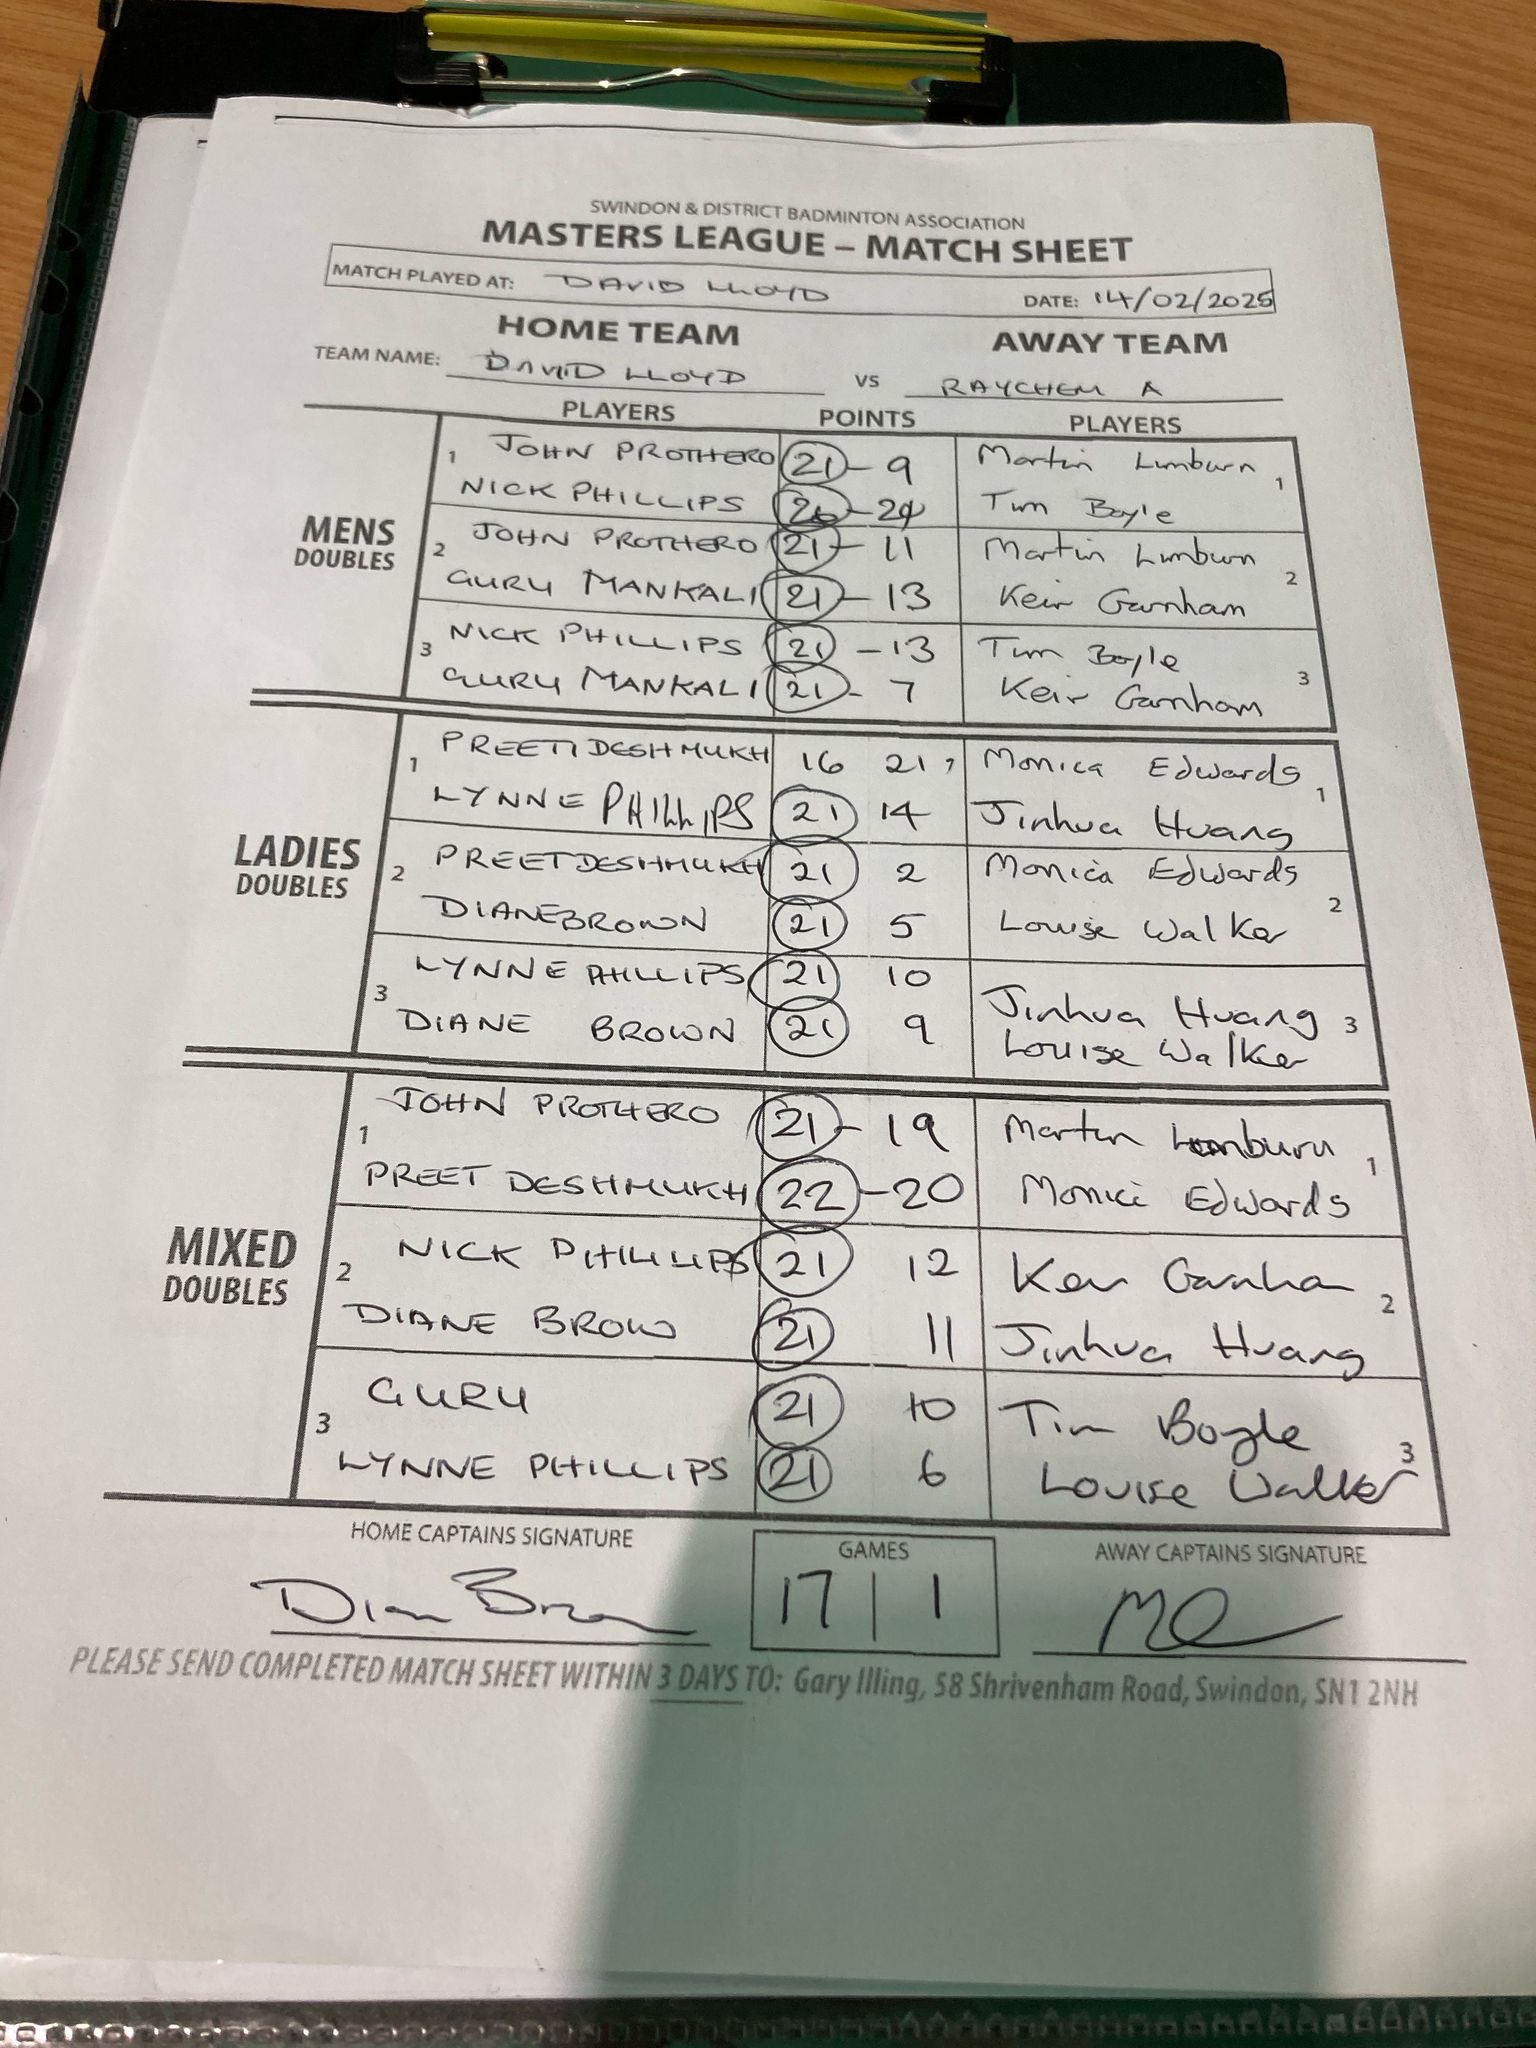 SWINDON & DISTRICT BADMINTON ASSOCIATION
MASTERS LEAGUE – MATCH SHEET
MATCH PLAYED AT: DAVID LLOYD DATE: 14/02/2025
HOME TEAM AWAY TEAM
TEAM NAME: DAVID LLOYD VS RAYCHEM A
PLAYERS POINTS PLAYERS
MENS DOUBLES
1 JOHN PROTHERO 21 - 9 Martin Limburn 1
NICK PHILLIPS Tim Boyle
2 JOHN PROTHERO 21 - 11 Martin Limburn 2
GURU MANKALI 21 - 13 Keir Garnham
3 NICK PHILLIPS 21 - 13 Tim Boyle 3
GURU MANKALI 21 - 7 Keir Garnham
LADIES DOUBLES
1 PREETI DESHMUKH 16 21 Monica Edwards 1
LYNNE PHILLIPS 21 14 Jinhua Huang
2 PREET DESHMUKH 21 2 Monica Edwards 2
DIANE BROWN 21 5 Louise Walker
3 LYNNE PHILLIPS 21 10 Jinhua Huang 3
DIANE BROWN 21 9 Louise Walker
MIXED DOUBLES
1 JOHN PROTHERO 21 - 19 Martin Limburn 1
PREET DESHMUKH 22 - 20 Monica Edwards
2 NICK PHILLIPS 21 12 Keir Garnham 2
DIANE BROW 21 11 Jinhua Huang
3 GURU 21 10 Tim Boyle 3
LYNNE PHILLIPS 21 6 Louise Walker
HOME CAPTAINS SIGNATURE GAMES AWAY CAPTAINS SIGNATURE
17 | 1
PLEASE SEND COMPLETED MATCH SHEET WITHIN 3 DAYS TO: Gary Illing, 58 Shrivenham Road, Swindon, SN1 2NH